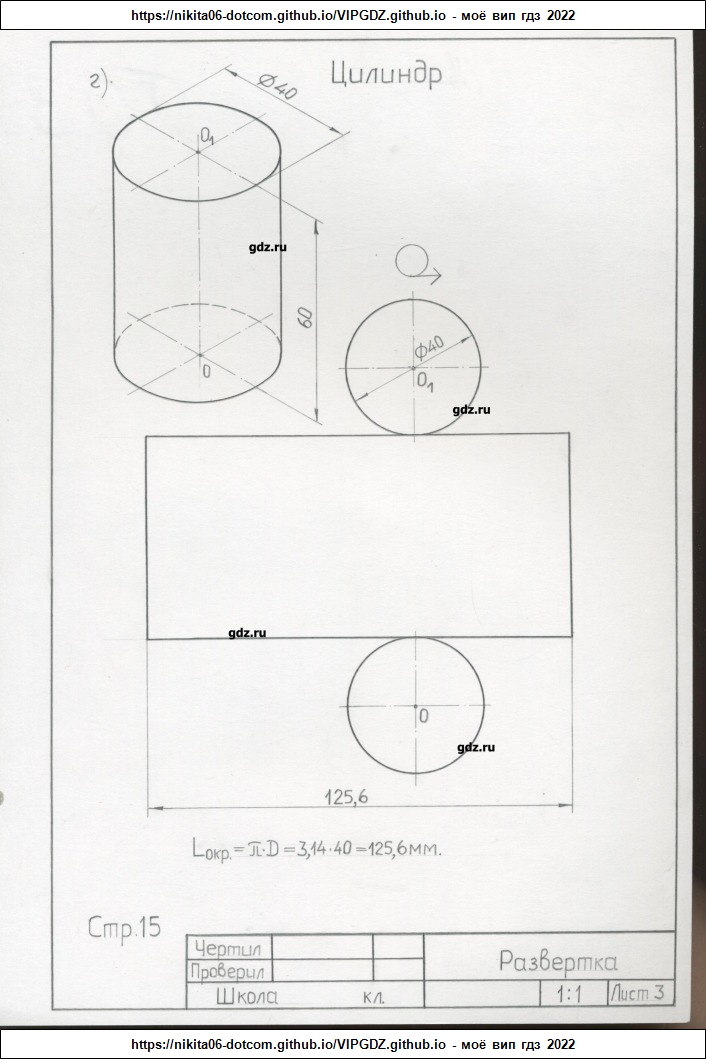 https://nikita06-dotcom.github.io/VIPGDZ.github.io - моё вип гдз 2022
г).
Цилиндр
⌀40
O₁
gdz.ru
60
O
⌀40
O₁
gdz.ru
gdz.ru
O
gdz.ru
125,6
Lокр.=π·D=3,14·40=125,6мм.
Стр.15
Чертил
Проверил
Развертка
Школа кл.
1:1
Лист 3
https://nikita06-dotcom.github.io/VIPGDZ.github.io - моё вип гдз 2022